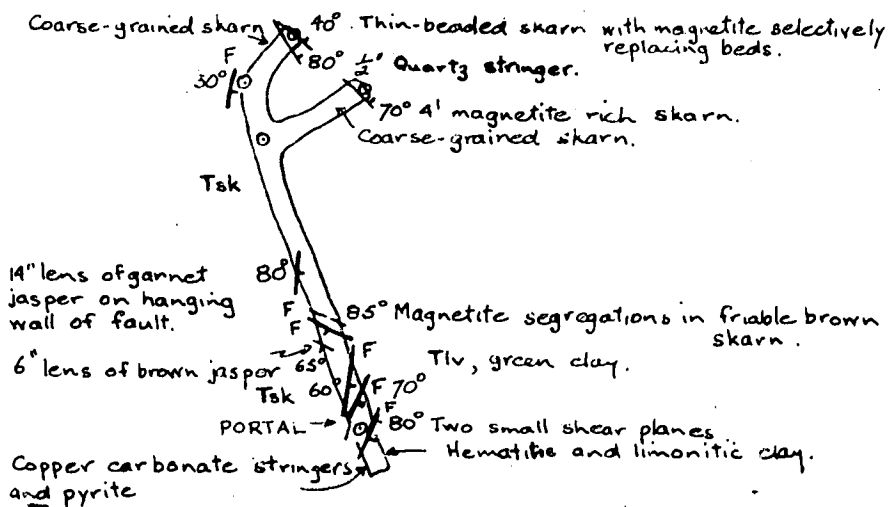 Coarse-grained skarn
40° Thin-beaded skarn with magnetite selectively
replacing beds.
F
80° ½' Quartz stringer.
30°
70° 4' magnetite rich skarn.
Coarse-grained skarn.
Tsk
14" lens of garnet
jasper on hanging
wall of fault.
80°
F
85° Magnetite segregations in friable brown
skarn.
F
F
6" lens of brown jaspor
65°
Tlv, green clay.
Tsk
60°
F 70°
F
PORTAL
80° Two small shear planes
Hematitic and limonitic clay.
Copper carbonate stringers
and pyrite